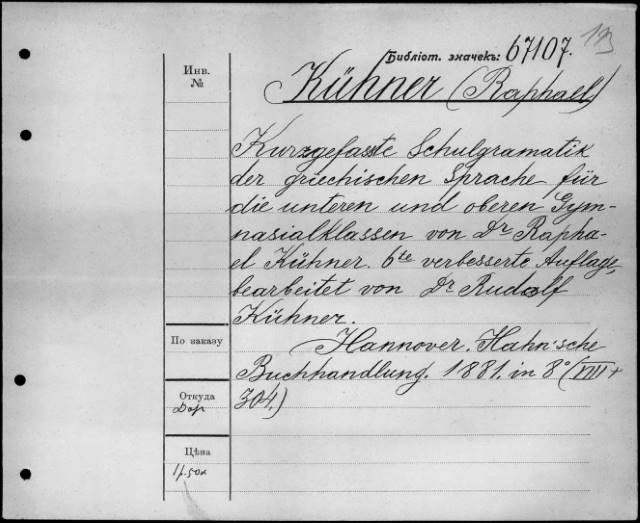 Библіот. значекъ: 67107.
Инв.
№
Kühner (Raphael)
Kurzgefasste Schulgramatik
der griechischen Sprache für
die unteren und oberen Gym-
nasialklassen von Dr Rapha-
el Kühner. 6te verbesserte Auflage,
bearbeitet von Dr Rudolf
Kühner.
По заказу
Hannover. Hahn'sche
Buchhandlung. 1881. in 8° (VIII +
304.)
Откуда
Дар
Цѣна